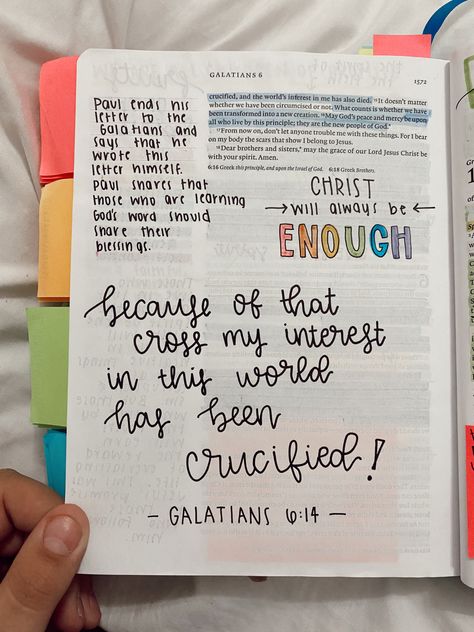 GALATIANS 6
1572
Paul ends his
letter to the
Galatians and
says that he
wrote this
letter himself.
Paul shares that
those who are learning
God's word should
share their
blessings.
crucified, and the world's interest in me has also died. 15It doesn't matter
whether we have been circumcised or not. What counts is whether we have
been transformed into a new creation. 16May God's peace and mercy be upon
all who live by this principle; they are the new people of God.*
17From now on, don't let anyone trouble me with these things. For I bear
on my body the scars that show I belong to Jesus.
18Dear brothers and sisters,* may the grace of our Lord Jesus Christ be
with your spirit. Amen.
6:16 Greek this principle, and upon the Israel of God. 6:18 Greek Brothers.
CHRIST
→ will always be ←
ENOUGH
because of that
cross my interest
in this world
has been
crucified!
- GALATIANS 6:14 -